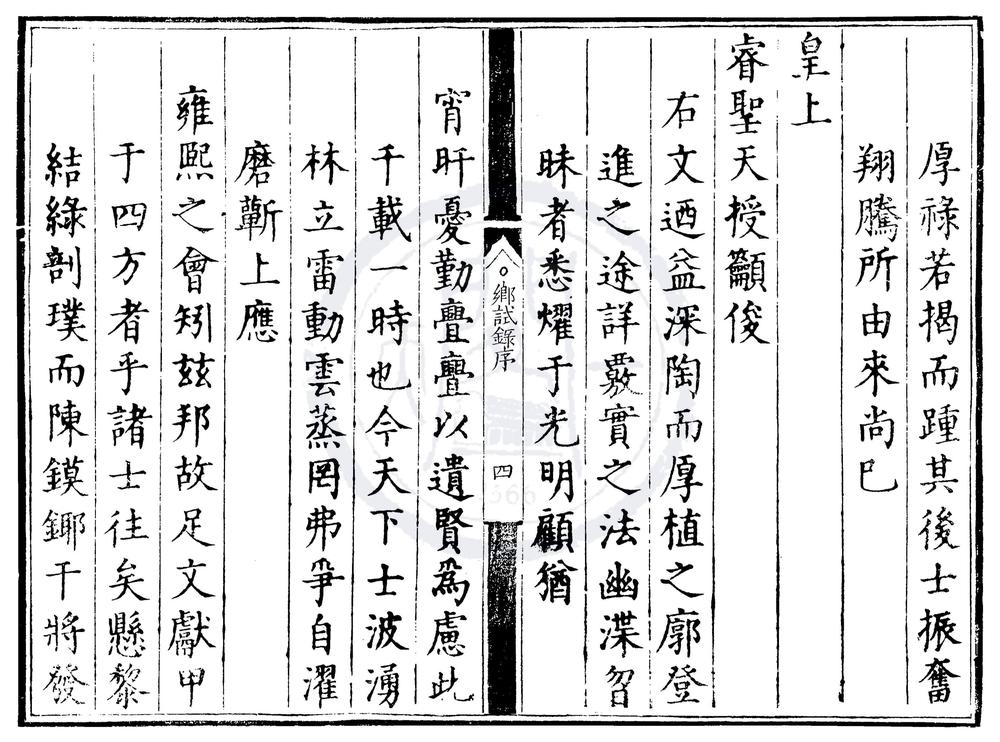 厚祿若揭而踵其後士振奮
翔騰所由來尚已
皇上
睿聖天授籲俊
右文迺益深陶而厚植之廓登
進之途詳覈實之法幽渫曶
昧者悉燿于光明顧猶
鄉試錄序
四
宵旰憂勤亹亹以遺賢爲慮此
千載一時也今天下士波湧
林立雷動雲蒸罔弗爭自濯
磨蘄上應
雍熙之會矧茲邦故足文獻甲
于四方者乎諸士往矣懸黎
結綠剖璞而陳鏌鎁干將發